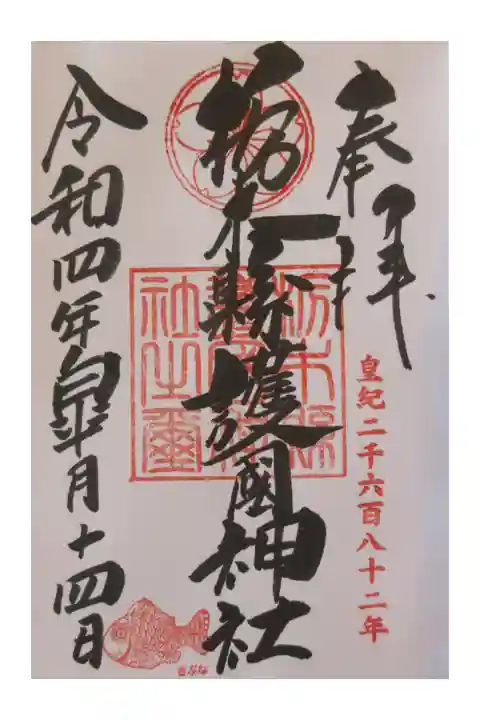 奉拝
皇紀二千六百八十二年
栃木縣護國神社
栃木縣
護國神
社之璽
令和四年皐月十四日
きぶな